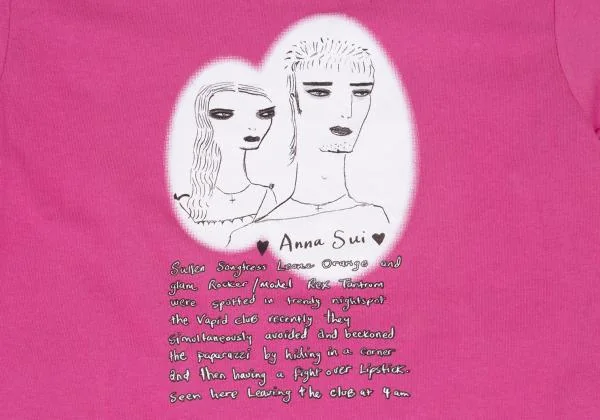 ♥ Anna Sui ♥
Sullen Songtress Leone Orange and
glam Rocker/Model Rex Tantrum
were spotted in trendy nightspot
the Vapid club recently they
simultaneously avoided and beckoned
the paparazzi by hiding in a corner
and then having a fight over Lipstick.
Seen here Leaving the club at 4 am